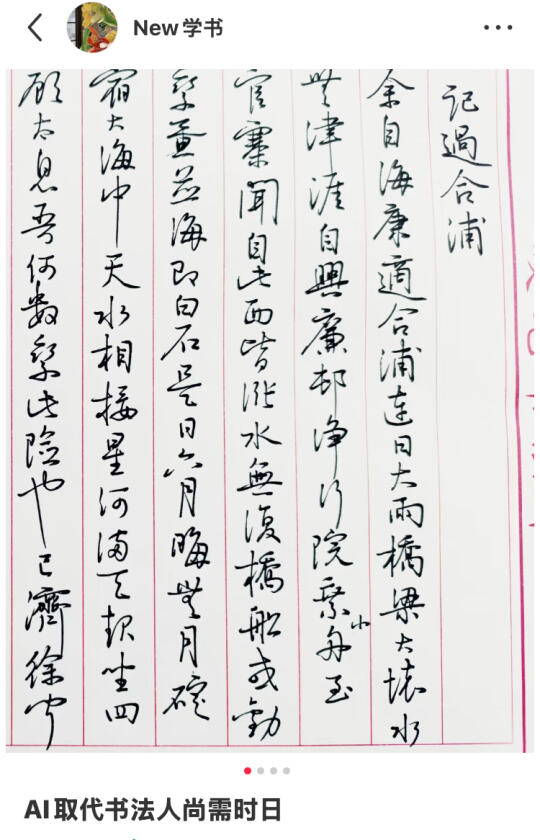 New学书
記過合浦
余自海康適合浦連日大雨橋梁大壞水
無津涯自興廉邨淨行院乘小舟至
官寨聞自此西皆漲水無復橋船或勸
乘蜑並海即白石是日六月晦無月碇
宿大海中天水相接星河滿天起坐四
顧太息吾何數乘此險也已濟徐聞
AI取代书法人尚需时日